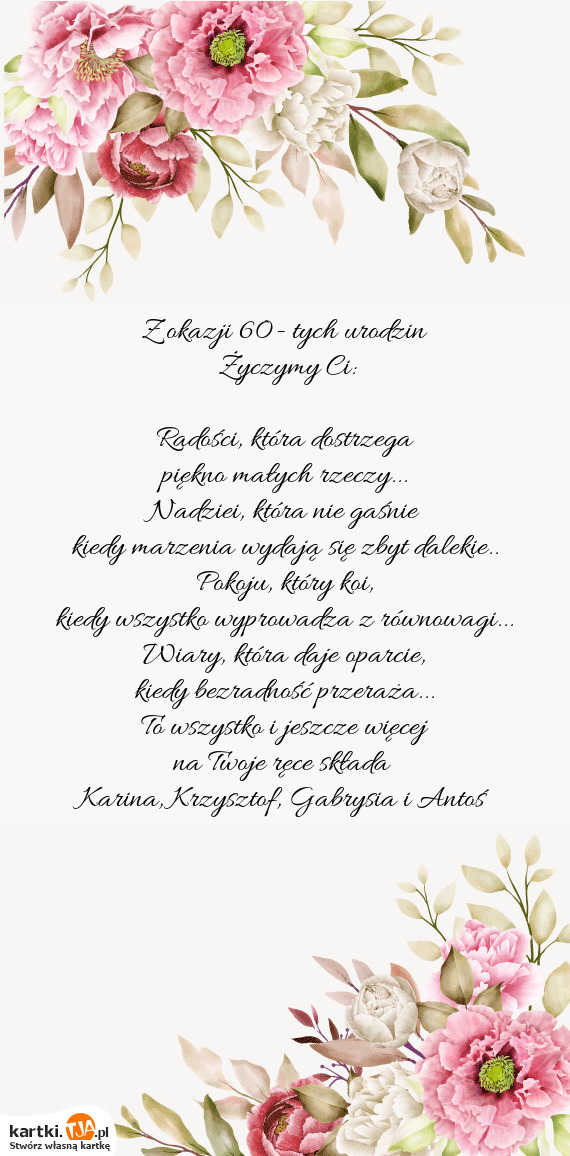 Z okazji 60 - tych urodzin
Życzymy Ci:
Radości, która dostrzega
piękno małych rzeczy...
Nadziei, która nie gaśnie
kiedy marzenia wydają się zbyt dalekie..
Pokoju, który koi,
kiedy wszystko wyprowadza z równowagi...
Wiary, która daje oparcie,
kiedy bezradność przeraża...
To wszystko i jeszcze więcej
na Twoje ręce składa
Karina, Krzysztof, Gabrysia i Antoś
kartki.TJA.pl
Stwórz własną kartkę